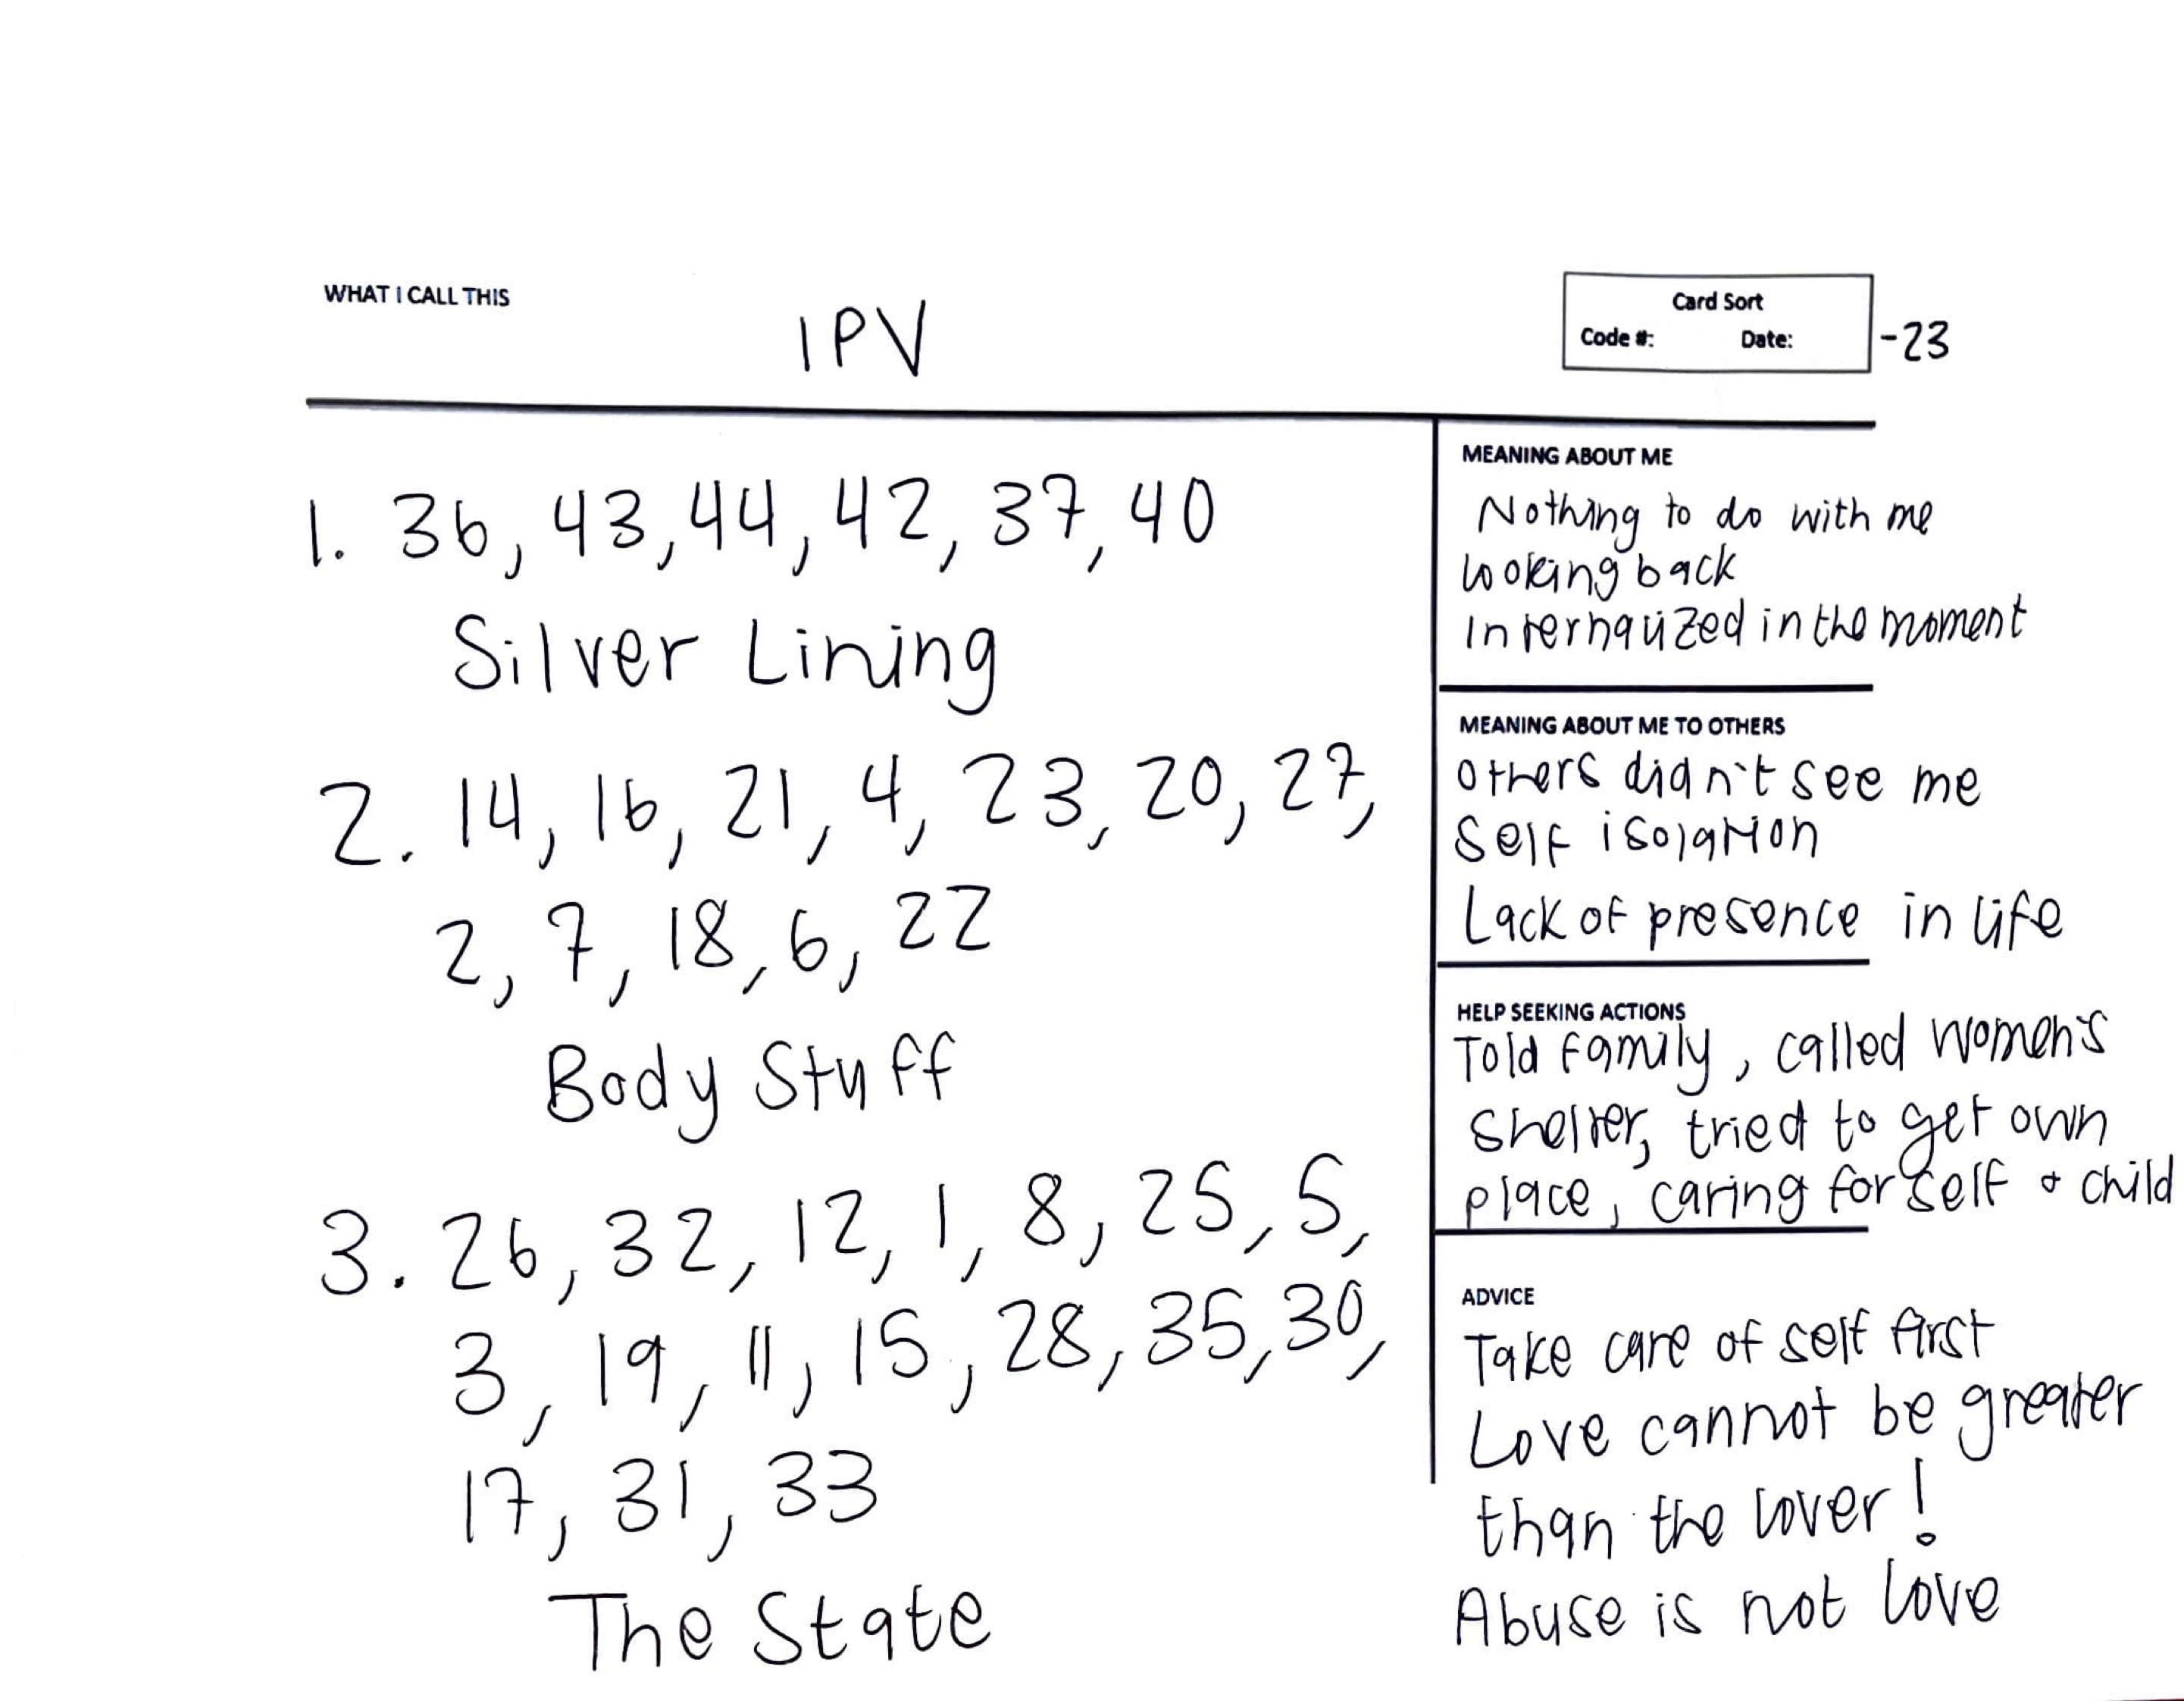 WHAT I CALL THIS
IPV
Card Sort
Code #: Date:
-23
1. 36, 43, 44, 42, 37, 40
Silver Lining
2. 14, 16, 21, 4, 23, 20, 27,
2, 7, 18, 6, 22
Body Stuff
3. 26, 32, 12, 1, 8, 25, 5,
3, 19, 11, 15, 28, 35, 30,
17, 31, 33
The State
MEANING ABOUT ME
Nothing to do with me
looking back
Internalized in the moment
MEANING ABOUT ME TO OTHERS
others didn't see me
Self isolation
Lack of presence in life
HELP SEEKING ACTIONS
Told family, called women's
shelter, tried to get own
place, caring for self & child
ADVICE
Take care of self first
Love cannot be greater
than the lover!
Abuse is not love